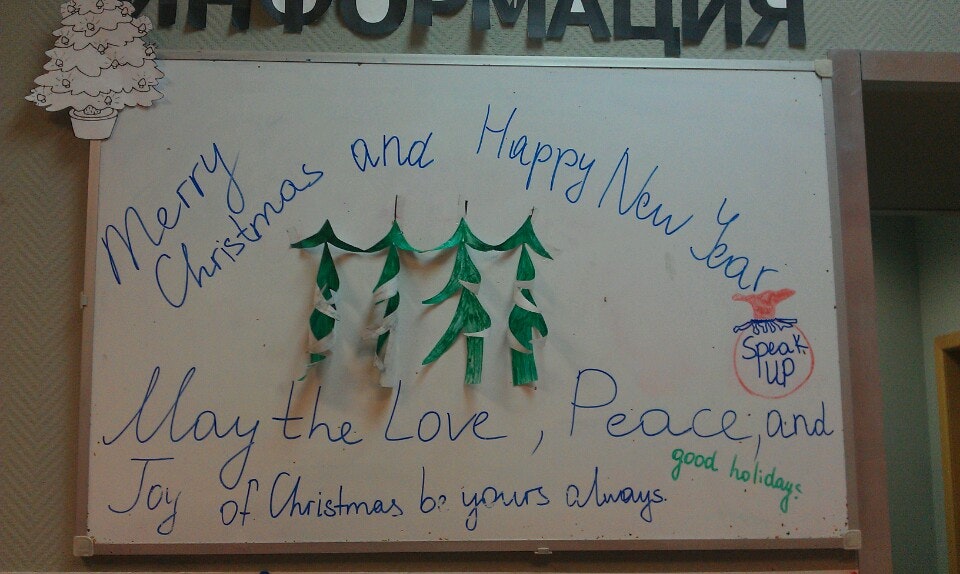 ИНФОРМАЦИЯ
Merry
Christmas and Happy New Year
Speak
UP
May the Love, Peace, and
good holidays
Joy of Christmas be yours always.